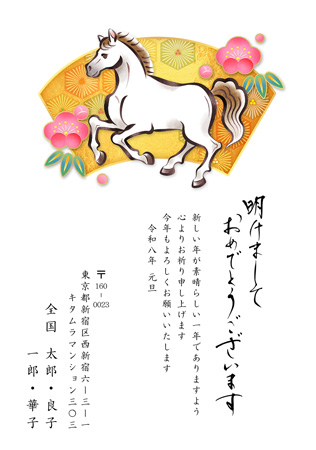 明けまして
おめでとうございます
新しい年が素晴らしい一年でありますよう
心よりお祈り申し上げます
今年もよろしくお願いいたします
令和八年 元旦
〒160-0023
東京都新宿区西新宿六ー三ー一
キタムラマンション三〇三
全国 太郎・良子
一郎・華子